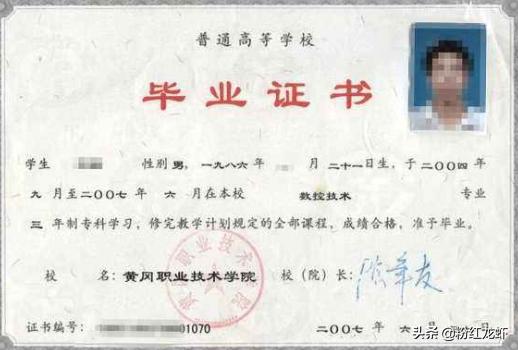 普通高等学校
毕业证书
学生 性别 男，一九八六年 月 二十一日生，于二〇〇四年
九 月至二〇〇七年 六 月在本校 数控技术 专业
三 年制专科学习，修完教学计划规定的全部课程，成绩合格，准予毕业。
校 名：黄冈职业技术学院 校（院）长：
黄冈职业技术学院
证书编号： 01070 二〇〇七年 六
头条 @粉红龙虾